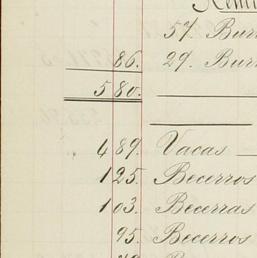 57. Burr
86. 29. Burr
580.
489. Vacas
125. Becerros
103. Becerras
95. Becerros